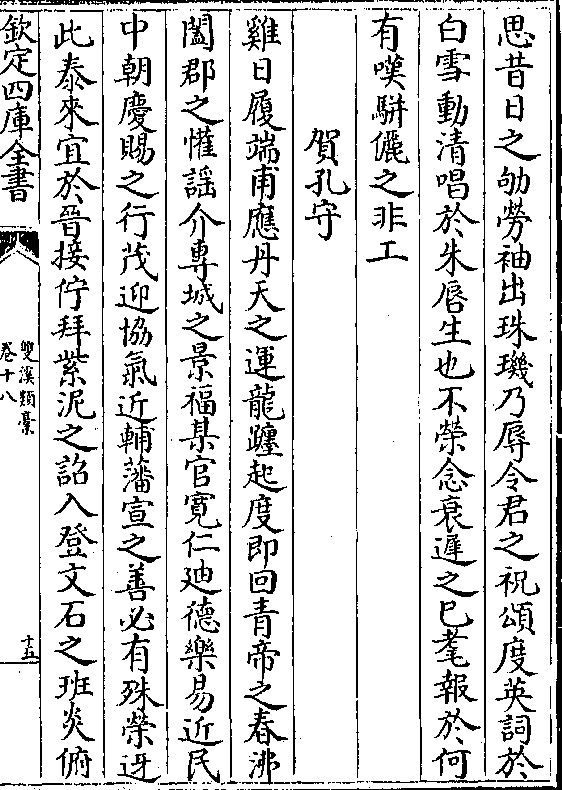 思昔日之劬勞袖出珠璣乃辱令君之祝頌度英詞於
白雪動清唱於朱唇生也不榮念衰遲之已耄報於何
有嘆駢儷之非工
賀孔守
雞日履端甫應丹天之運龍躔起度即回青帝之春沸
闔郡之懽謡介專城之景福某官寛仁廸德樂易近民
中朝慶賜之行茂迎協氣近輔藩宣之善必有殊榮迓
此泰來宜於晉接佇拜紫泥之詔入登文石之班炎俯
欽定四庫全書
雙溪類藁
卷十八
十五